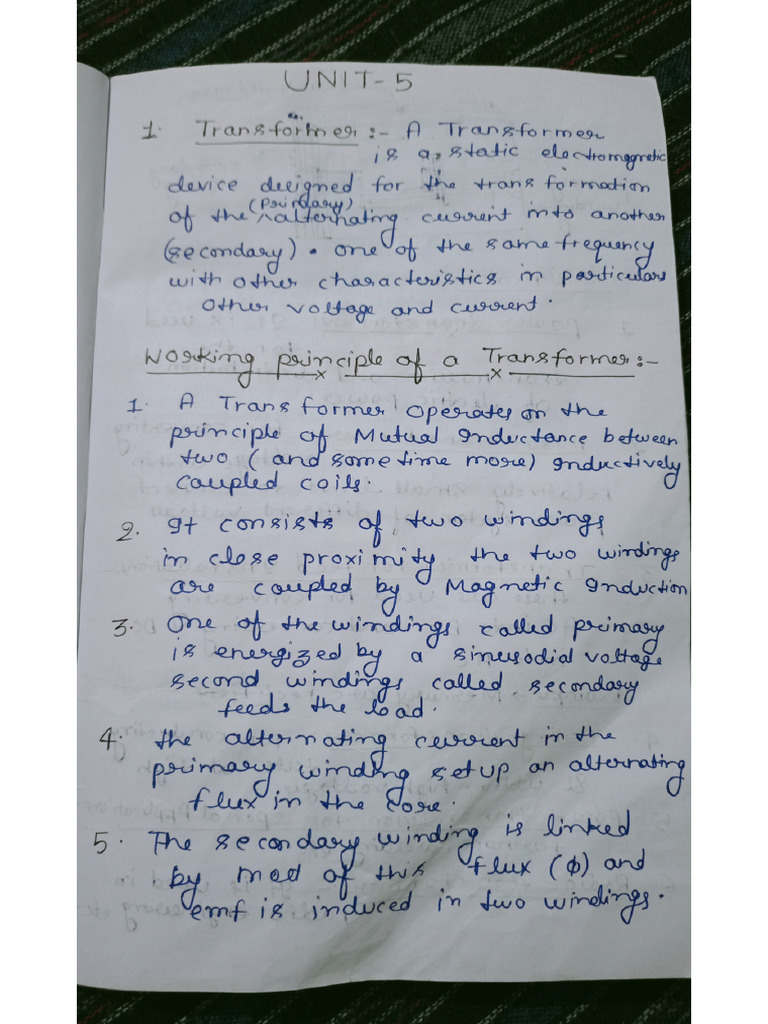 UNIT-5
1. Transformer :- A Transformer
is a static electromagnetic
device designed for the transformation
of the (Primary) alternating current into another
(secondary). one of the same frequency
with other characteristics in particulars
other voltage and current.
Working principle of a Transformer :-
1. A Transformer operates on the
principle of Mutual Inductance between
two (and sometime more) Inductively
coupled coils.
2. It consists of two windings
in close proximity the two windings
are coupled by Magnetic Induction
3. One of the windings called primary
is energized by a sinusodial voltage
second windings called secondary
feeds the load.
4. The alternating current in the
primary winding set up an alternating
flux in the core.
5. The secondary winding is linked
by most of this flux (ϕ) and
emf is induced in two windings.